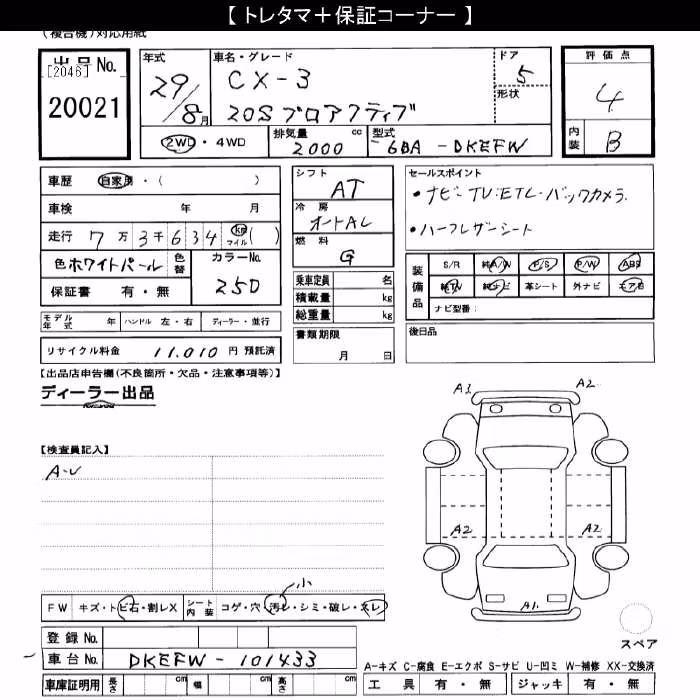 【 トレタマ＋保証コーナー 】
(複合機)対応用紙
出品No.
[2046]
20021
年式
29/8月
車名・グレード
CX-3
20S プロアクティブ
ドア
5
形状
評価点
4
内装
B
2WD ・ 4WD
排気量
2000 cc
型式
6BA - DKEFW
車歴 自家用 ・ ( )
車検 年 月
走行 7万 3千 6 3 4 km マイル ( )
色 ホワイトパール
色替
カラーNo.
25D
保証書 有 ・ 無
モデル年式 年
ハンドル 左・右
ディーラー・並行
リサイクル料金 11,010 円 預託済
シフト
AT
冷房
オートAC
燃料
G
乗車定員 名
積載量 kg
総重量 kg
書類期限
月 日
セールスポイント
・ナビ・TV・ETC・バックカメラ
・ハーフレザーシート
装備品
S/R 純A/W P/S P/W ABS
純TV 純ナビ 革シート 外ナビ エアB
ナビ型番：
後日品
【出品店申告欄(不良箇所・欠品・注意事項等)】
ディーラー出品
【検査員記入】
A-U
A3
A2
A2
A2
A1.
スペア
小
FW キズ・トビ石・割レX
シート内装 コゲ・穴 汚レ・シミ・破レ・スレ
登録 No.
車台 No. DKEFW - 101433
車庫証明用 長さ cm 幅 cm 高さ cm
A-キズ C-腐食 E-エクボ S-サビ U-凹ミ W-補修 XX-交換済
工具 有 ・ 無 ジャッキ 有 ・ 無